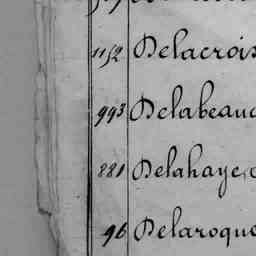 1152 Delacroix
993 Delabeau
881 Delahaye,
96 Delaroqu